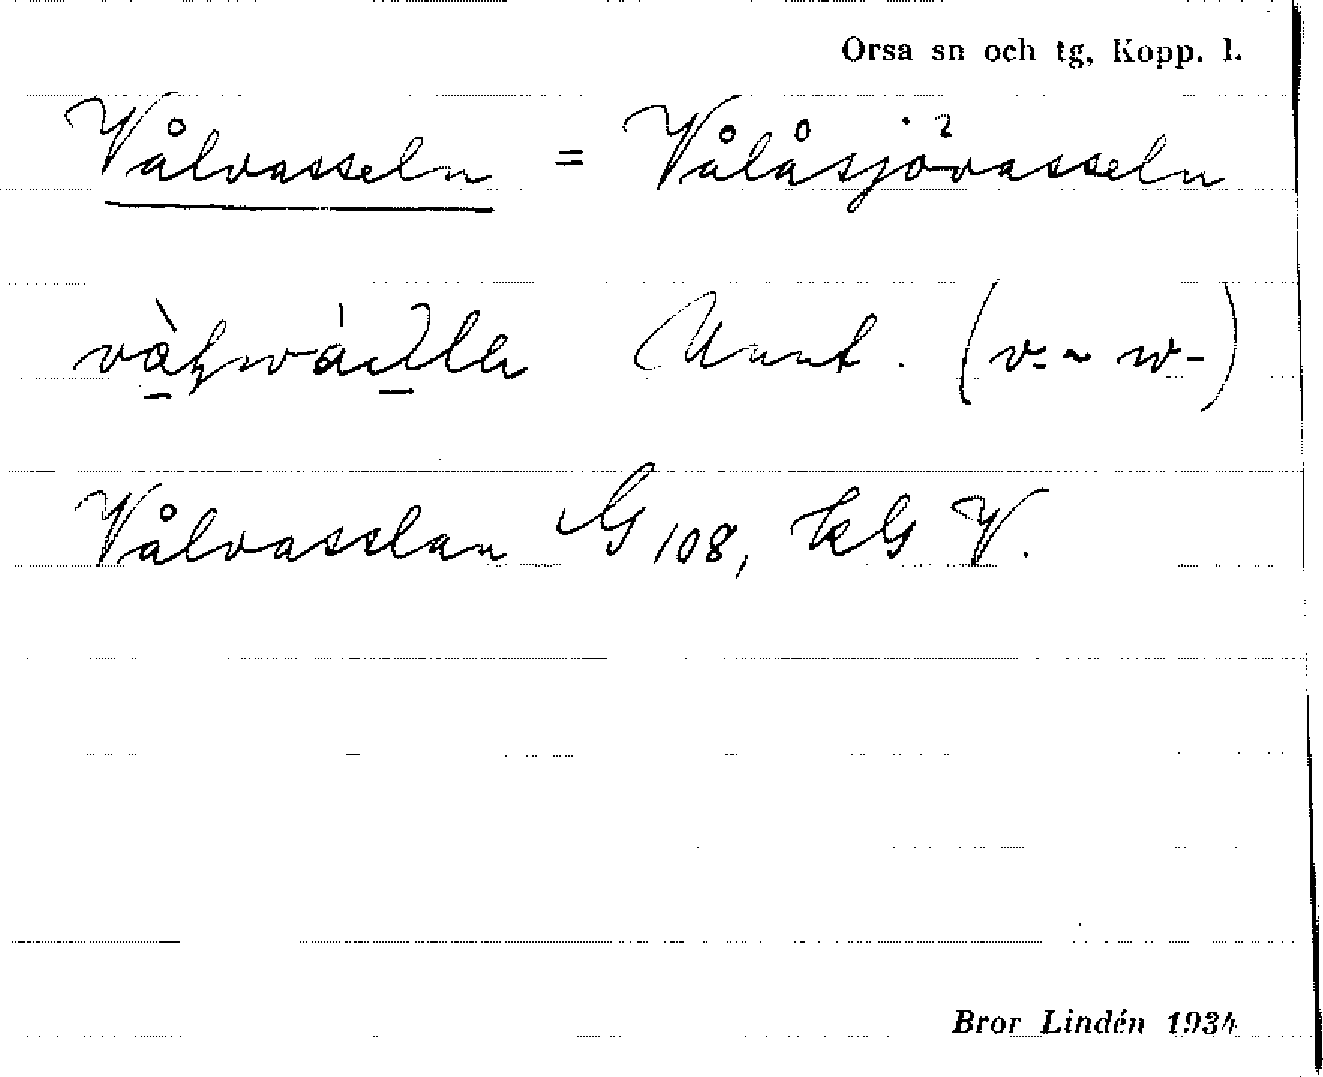 Orsa sn och tg, Kopp. l.
Vålvasseln = Vålåsjövasseln
(v- ~ w-)
Vålvasslan G 108, kG V.
Bror Lindén 1934